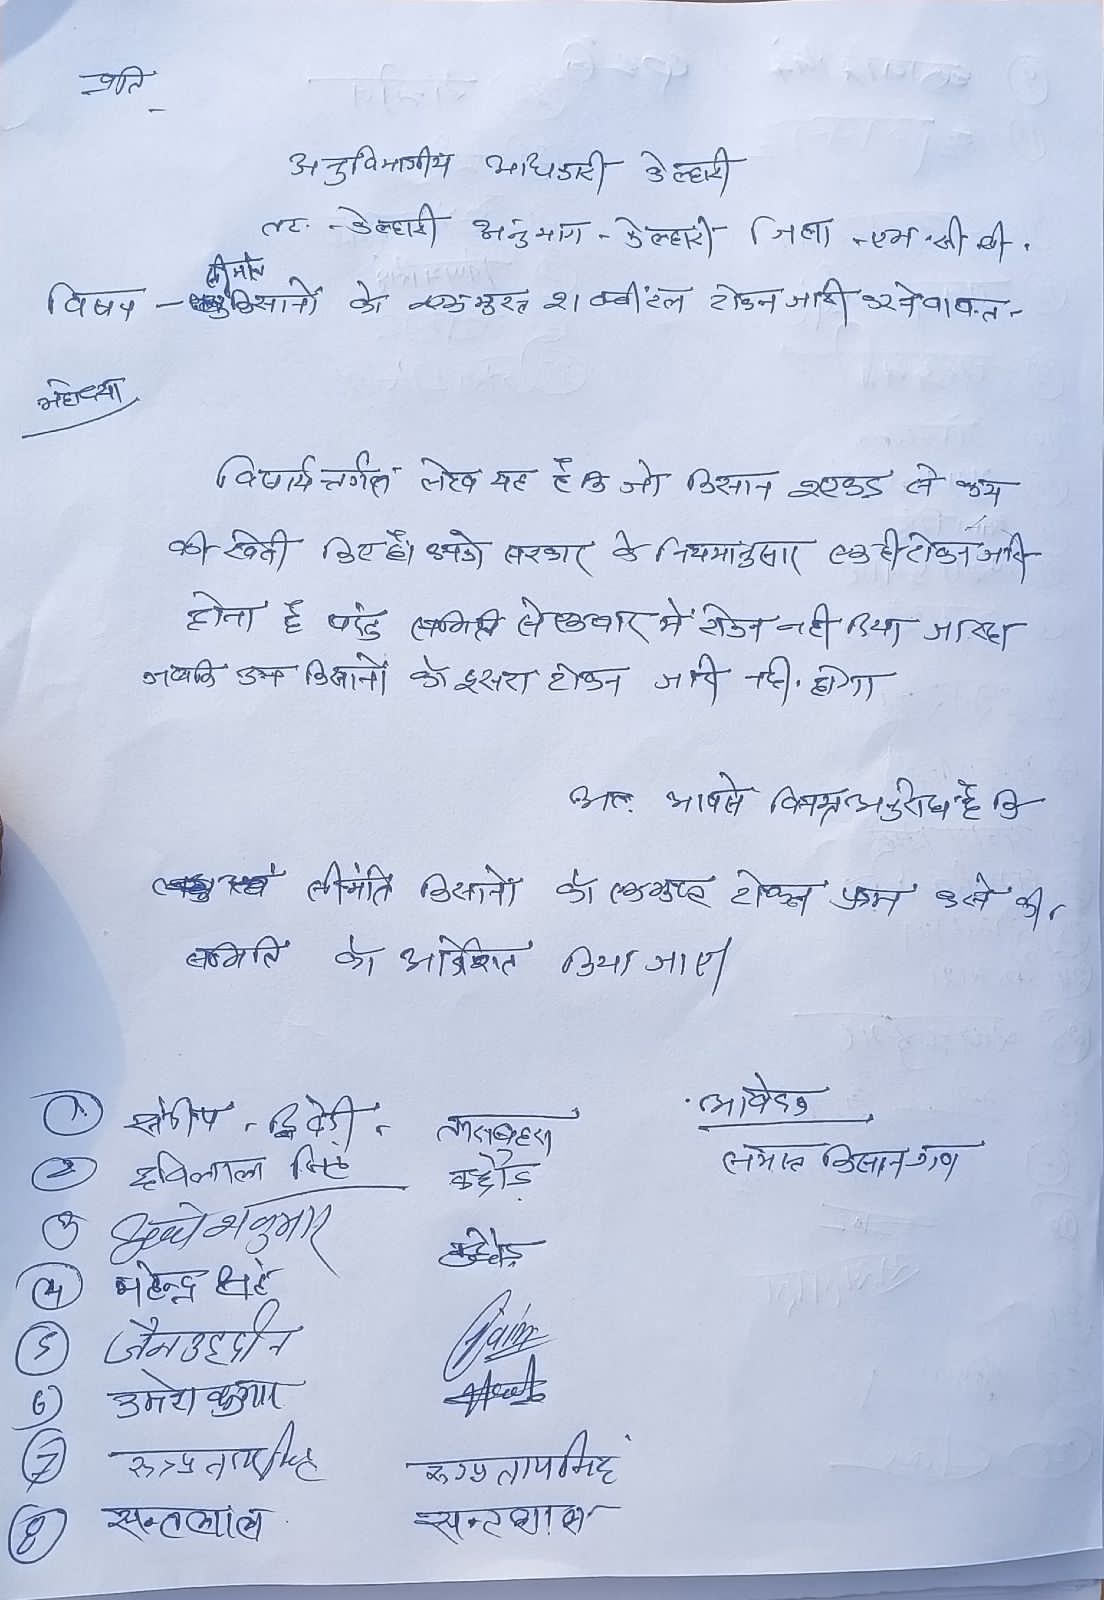 प्रति
अनुविभागीय अधिकारी केल्हारी
तह. - केल्हारी अनुभाग - केल्हारी जिला - एम.सी.बी.
सीमांत
विषय - किसानों के एकमुस्त क्वींटल टोकन जारी करने बाबत -
महोदया
विषयांर्तगत लेख यह है कि जो किसान २ एकड़ से कम
की खेती किए है। उनको सरकार के नियमानुसार एक ही टोकन जारी
होना है परंतु समिति से एकबार में टोकन नही किया जा रहा
जबकि उन किसानों को दुसरा टोकन जारी नही. होगा
अतः आपसे विनम्र अनुरोध है कि
सीमांत किसानों को एकमुस्त टोकन करने की.
समिति को आदेशित किया जाए।
① संतोष द्विवेदी. आवेदक
② सिंह समस्त किसान गण
③
④ महेन्द्र सिंह
⑤ जैनउद्दीन
⑥ उमेश कुमार
⑦ रुद्रप्रताप सिंह रुद्रप्रताप सिंह
⑧ सन्तलाल सन्तलाल